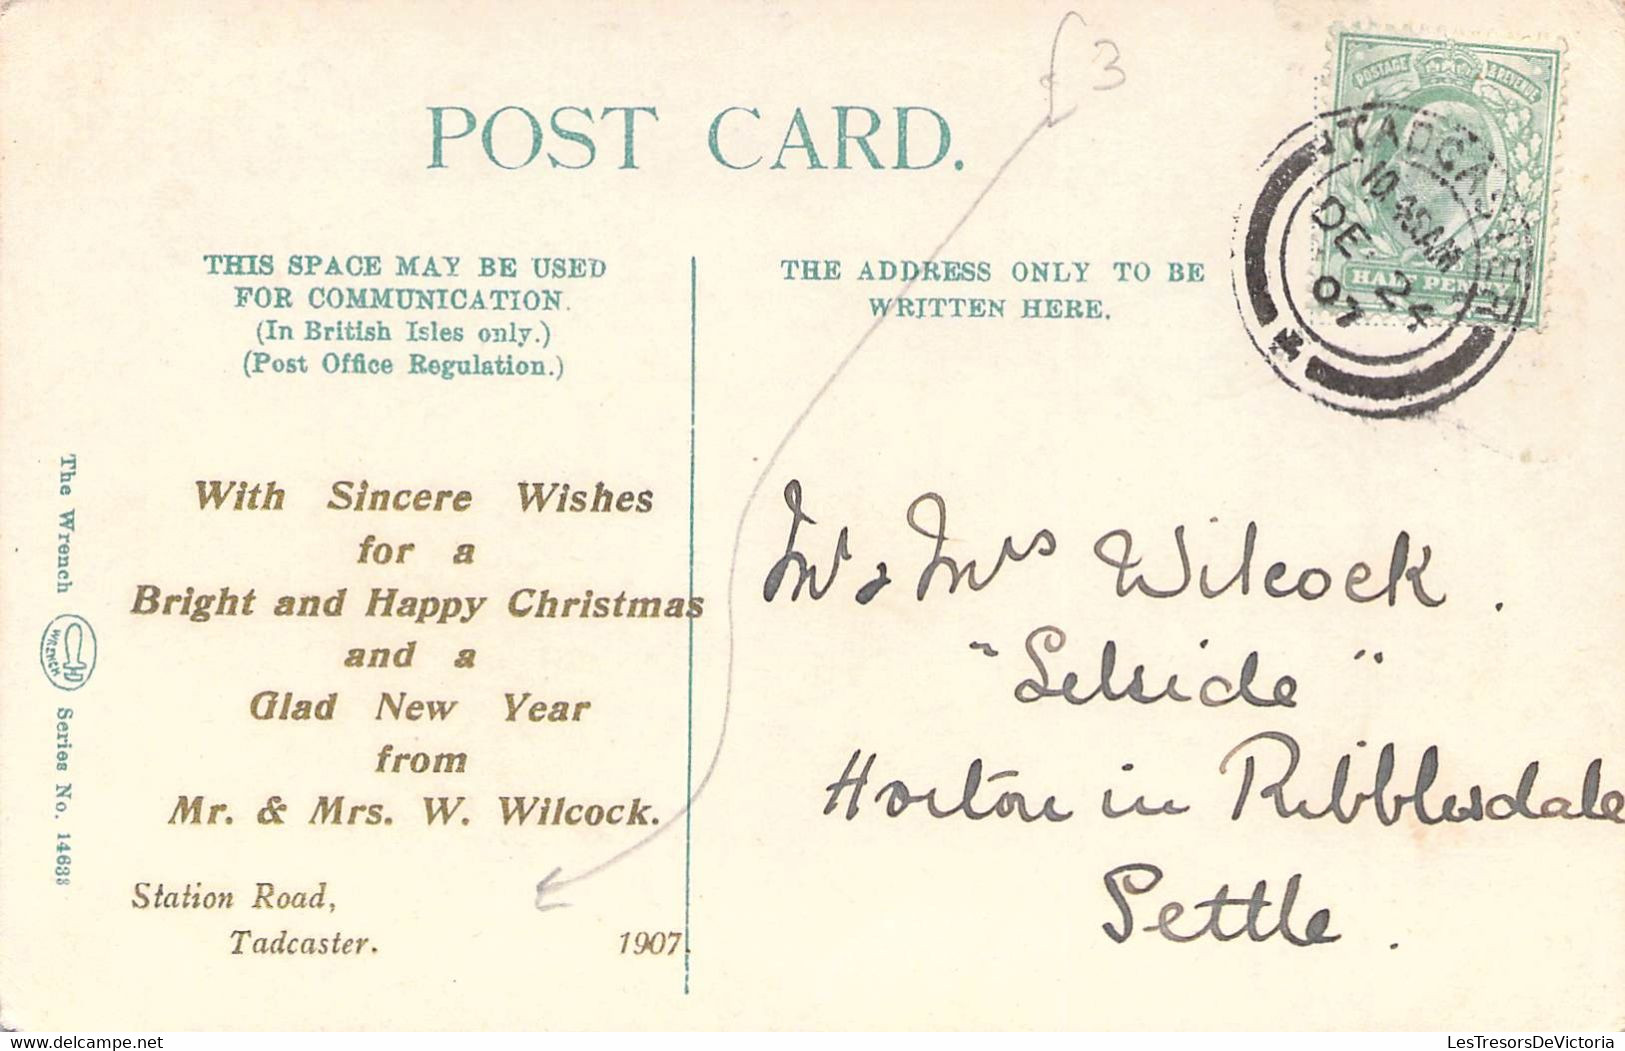 £3
POST CARD.
POSTAGE & REVENUE
TADCASTER
10.40AM
DE 24
07
HALF PENNY
THIS SPACE MAY BE USED
FOR COMMUNICATION.
(In British Isles only.)
(Post Office Regulation.)
THE ADDRESS ONLY TO BE
WRITTEN HERE.
The Wrench
WRENCH
Series No. 14633
With Sincere Wishes
for a
Bright and Happy Christmas
and a
Glad New Year
from
Mr. & Mrs. W. Wilcock.
Station Road,
Tadcaster. 1907.
Mr & Mrs Wilcock.
"Selside"
Horton in Ribblesdale
Settle.
LesTresorsDeVictoria
delcampe.net